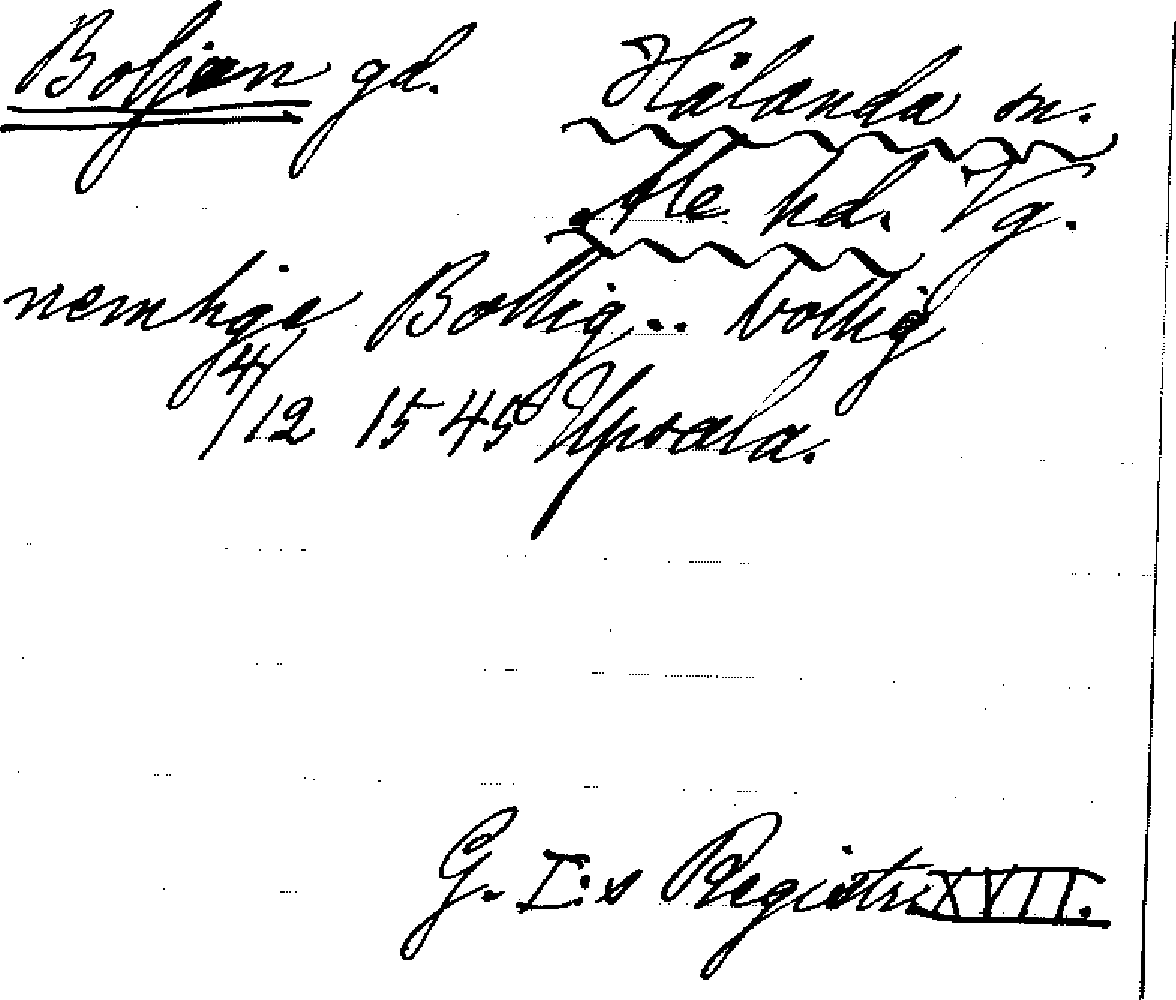 Boljen gd. Hålanda sn.
Ale hd. Vg.
nemlige Bollig .. bollig
4/12 1545 Upsala.
G. I:s Registr. XVII.